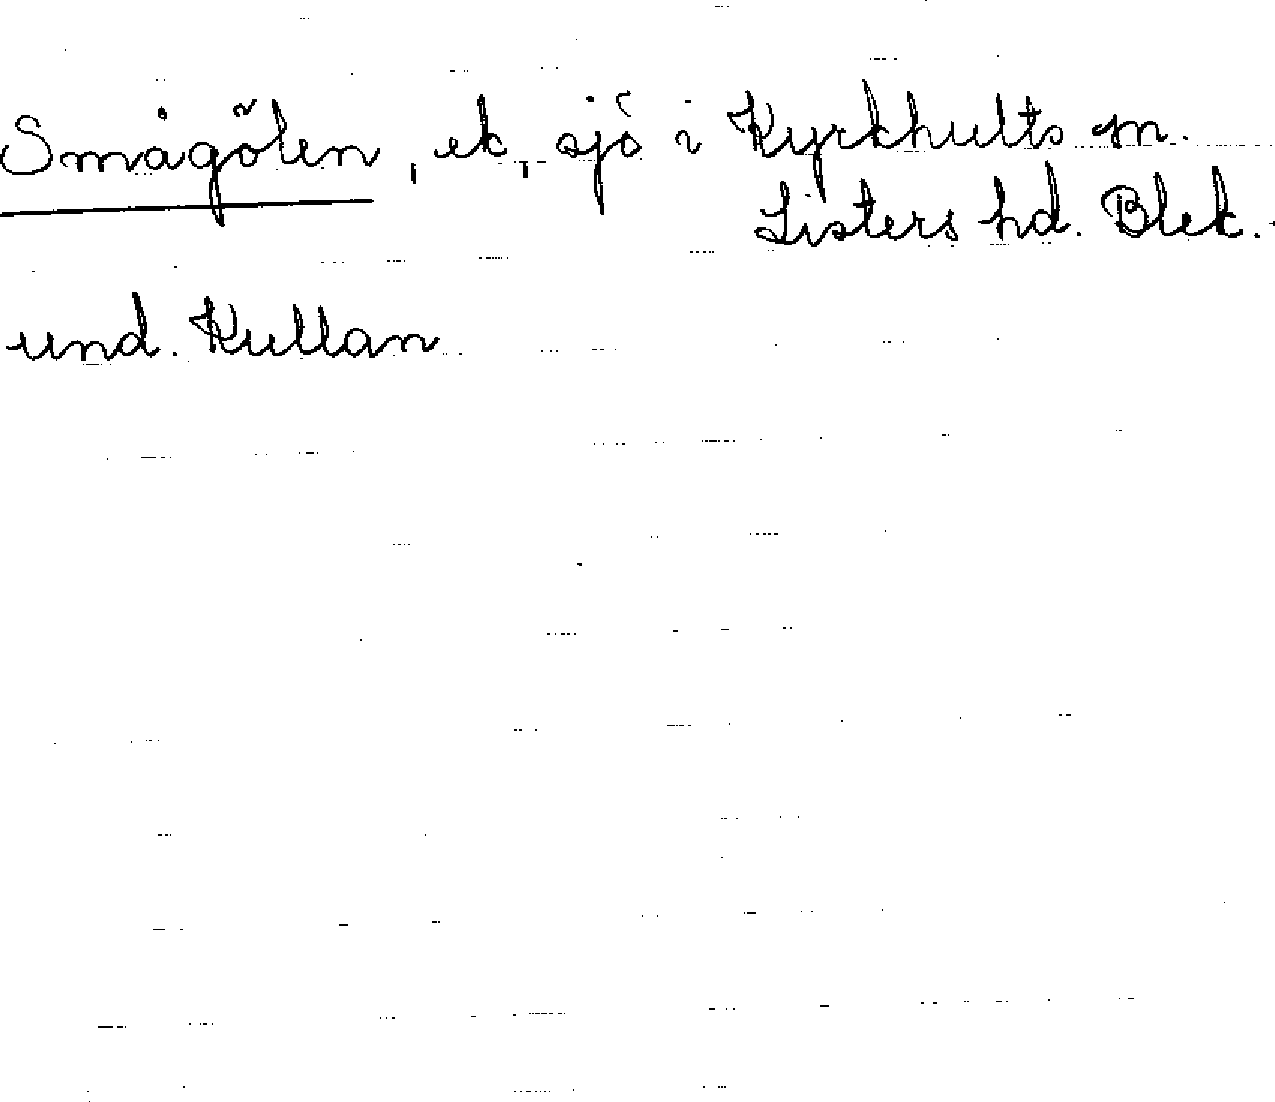 Smågölen, ek, sjö i Kyrkhults sn.
Listers hd. Blek.
und. Kullan